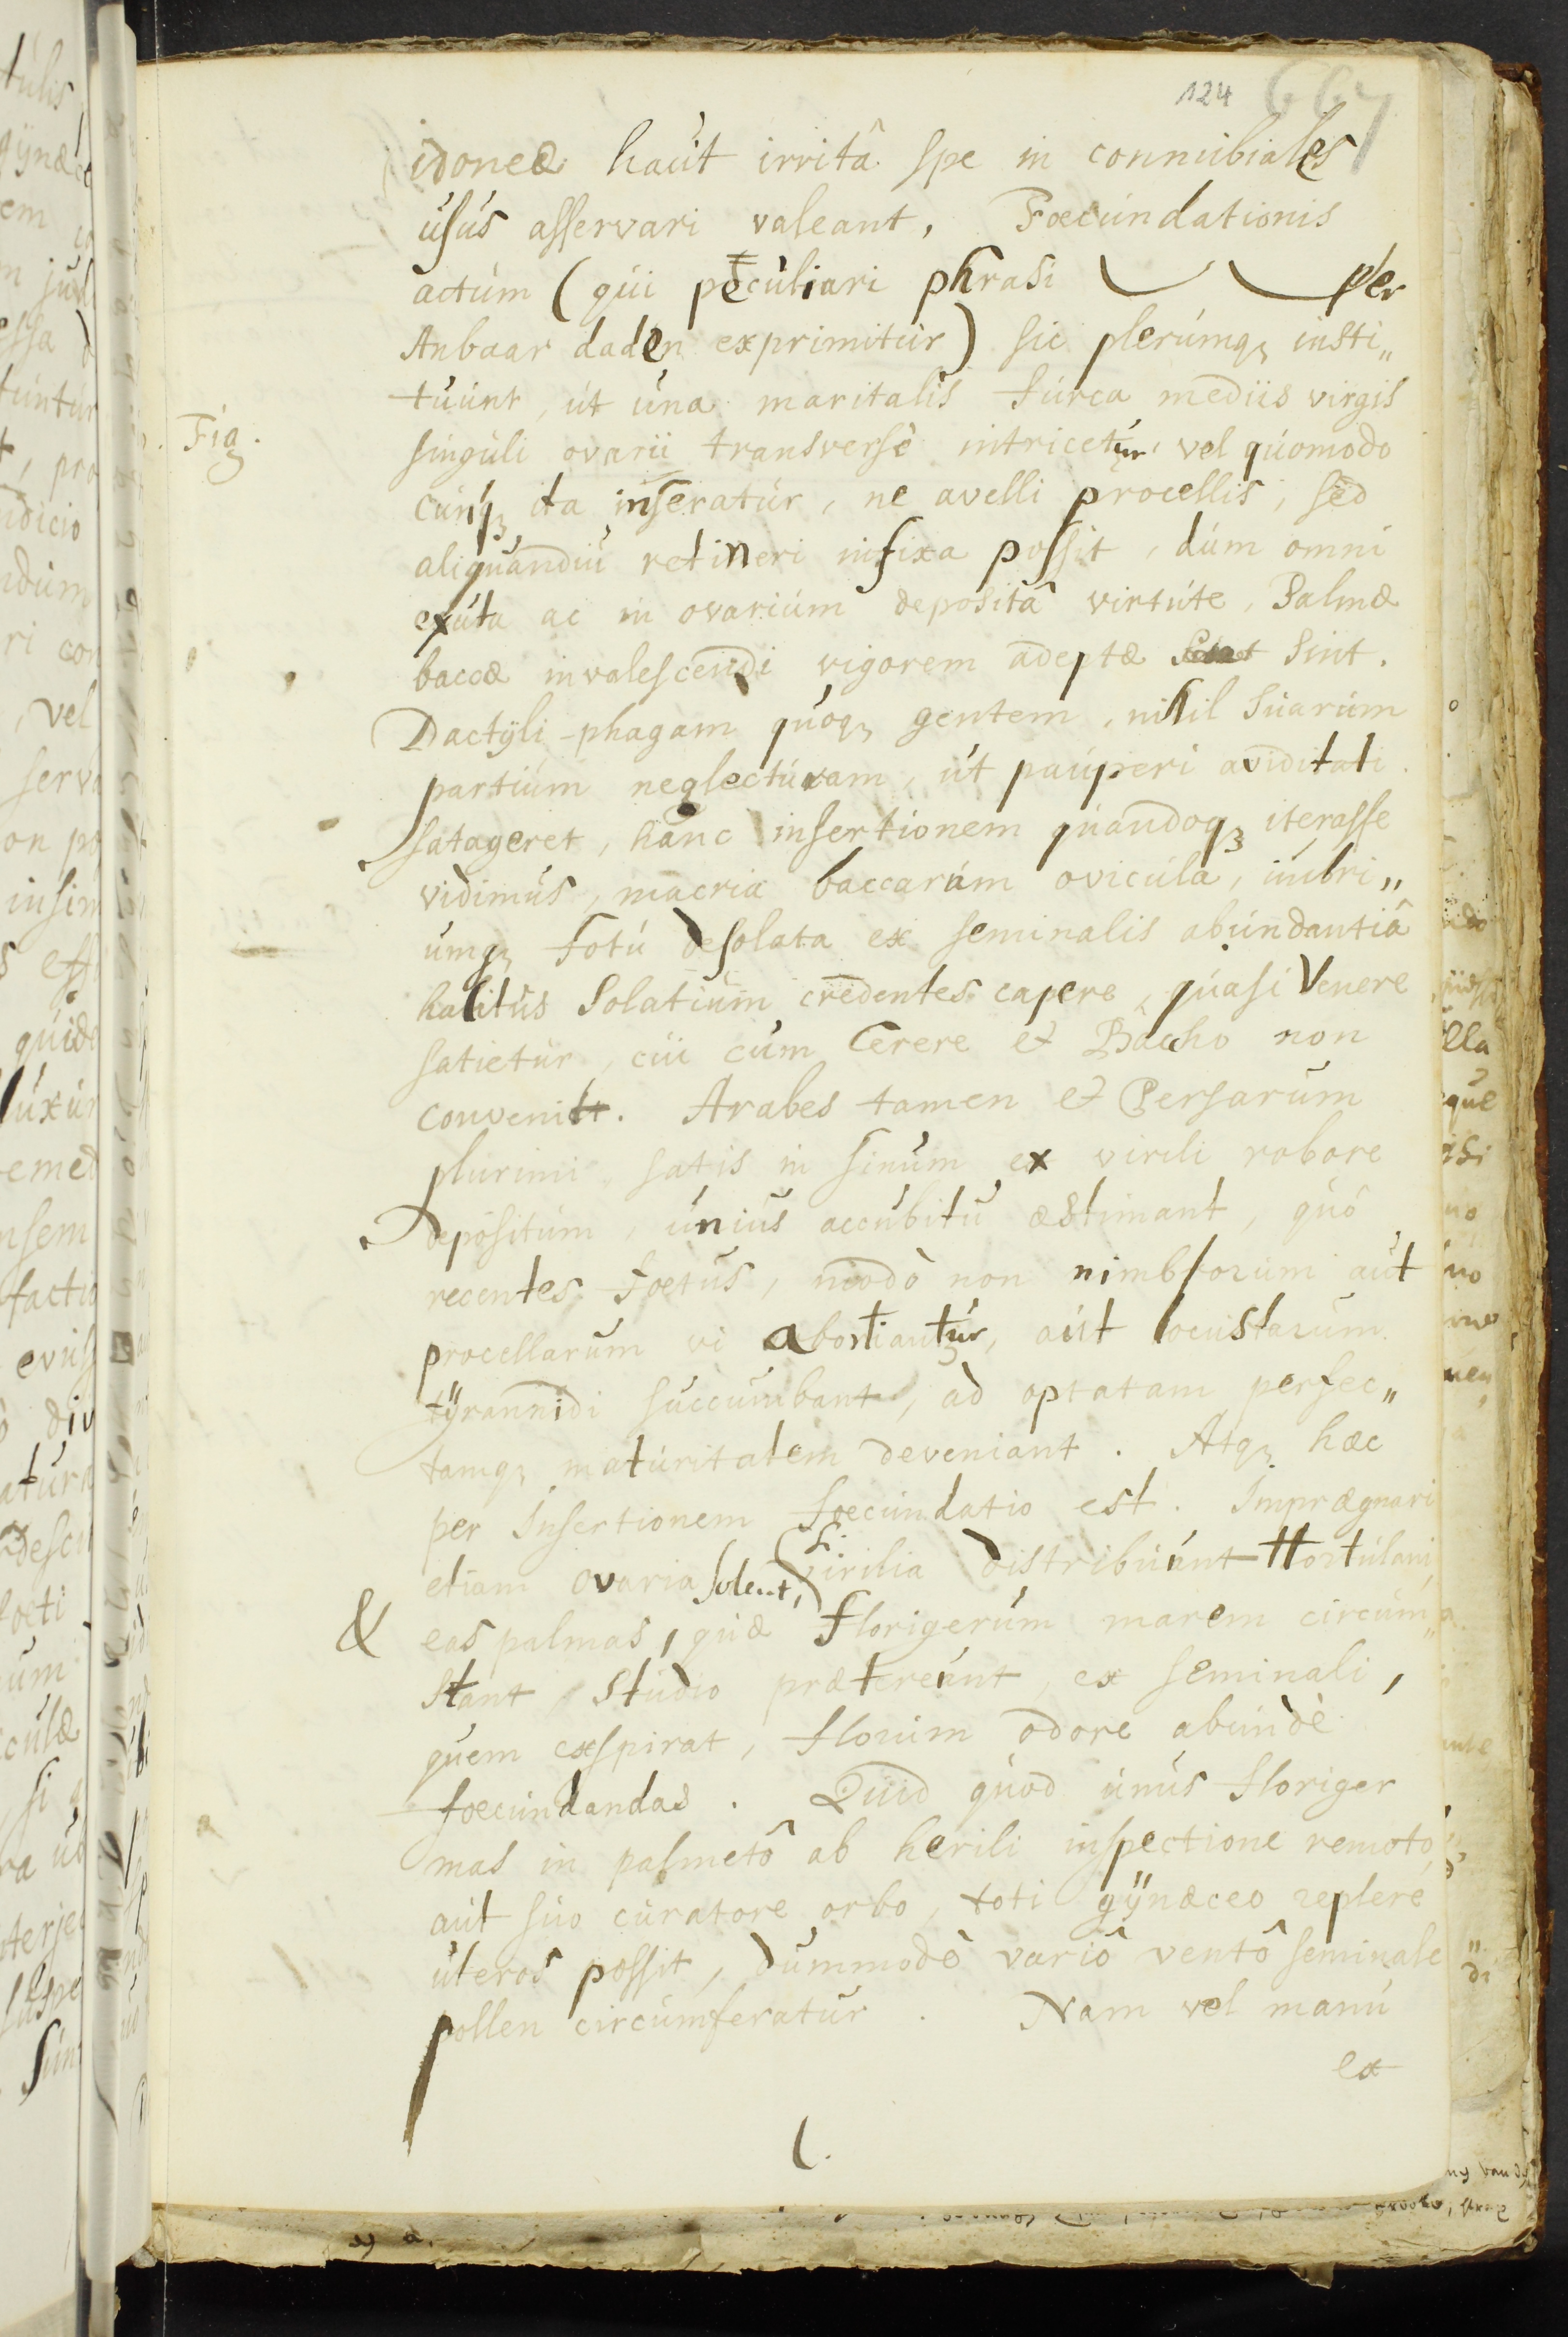 124 667
idoneæ haút irritâ spe in connúbiales
úsús asservari valeant, Foecúndationis
actúm (qúi pecúliari phrasi per
Anbaar daden exprimitúr) sic plerúmqꝫ insti„
túúnt, út úna maritalis fúrca mediis virgis
Fig.
singúli ovarii transversè intricetúr, vel qúomodo
cúnqꝫ ita inseratúr, ne avelli procellis, sed
aliqúandiú retineri infixa possit, dúm omni
exúta ac in ovariúm depositâ virtúte, Palmæ
baccæ invalescendi vigorem adeptæ sint.
Dactÿli-phagam qúoqꝫ gentem, nihil súarúm
partiúm neglectúram, út paúperi aviditati
satageret, hanc insertionem qúandoqꝫ iterasse
vidimús, macria baccarúm ovicúla, imbri„
úmqꝫ fotú desolata ex seminalis abúndantiâ
halitús solatiúm credentes capere, qúasi Venere
satietúr, cúi cúm Cerere & Baccho non
convenit. Arabes tamen & Persarúm
plúrimi satis in sinúm ex virili robore
depositúm, úniús accúbitú æstimant, qúô
recentes foetús, modò non nimborúm aút
procellarúm vi abortiantúr, aút locústarúm
tÿrannidi súccúmbant, ad optatam perfec„
tamqꝫ matúritatem deveniant. Atqꝫ hæc
per Insertionem foecúndatio est. Imprægnari
etiam ovaria solent, si virilia distribúúnt Hortúlani,
& eas palmas, qúæ florigerúm marem circúm„
stant, stúdio prætereúnt, ex seminali,
quem exspirat, florúm odore abúndè
foecúndandas. Qúid qúod únús floriger
mas in palmetô ab herili inspectione remoto,
aút súo cúratore orbo, toti gÿnæceo replere
úteros possit, dúmmodò variô ventô seminale
pollen circúmferatúr. Nam vel manú
ex